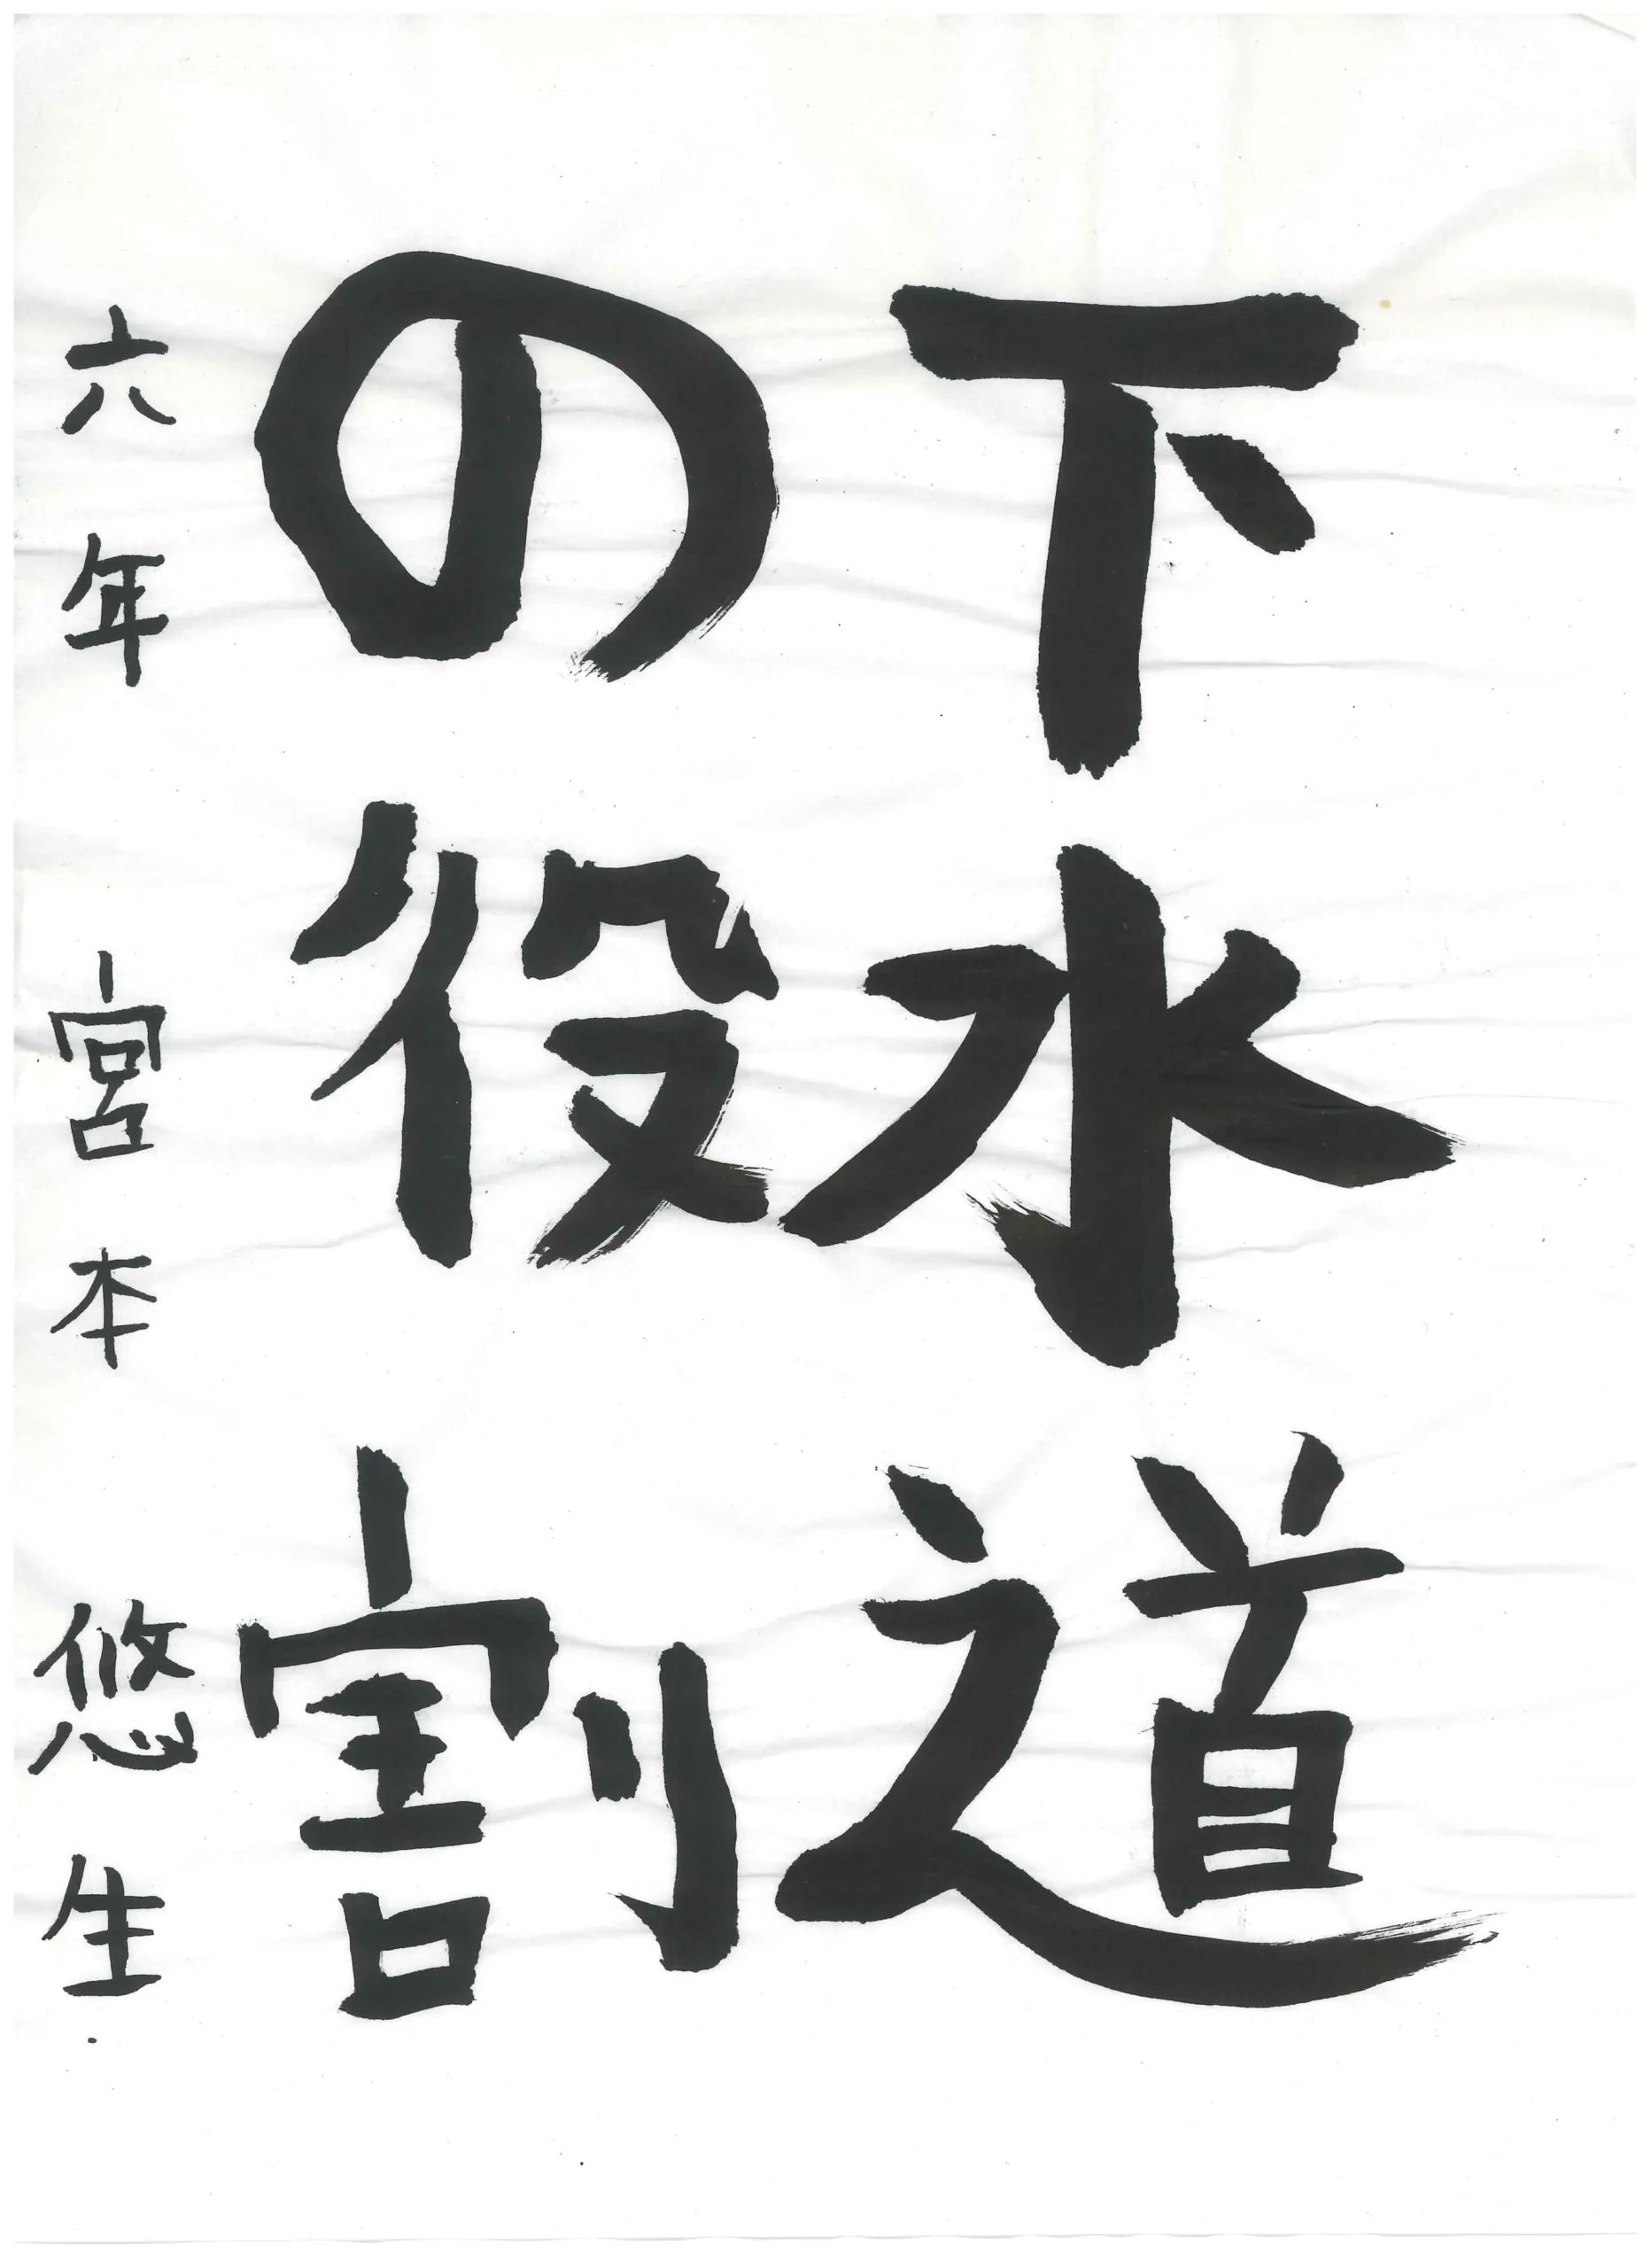 下水道
の役割
六年 宮本 悠生